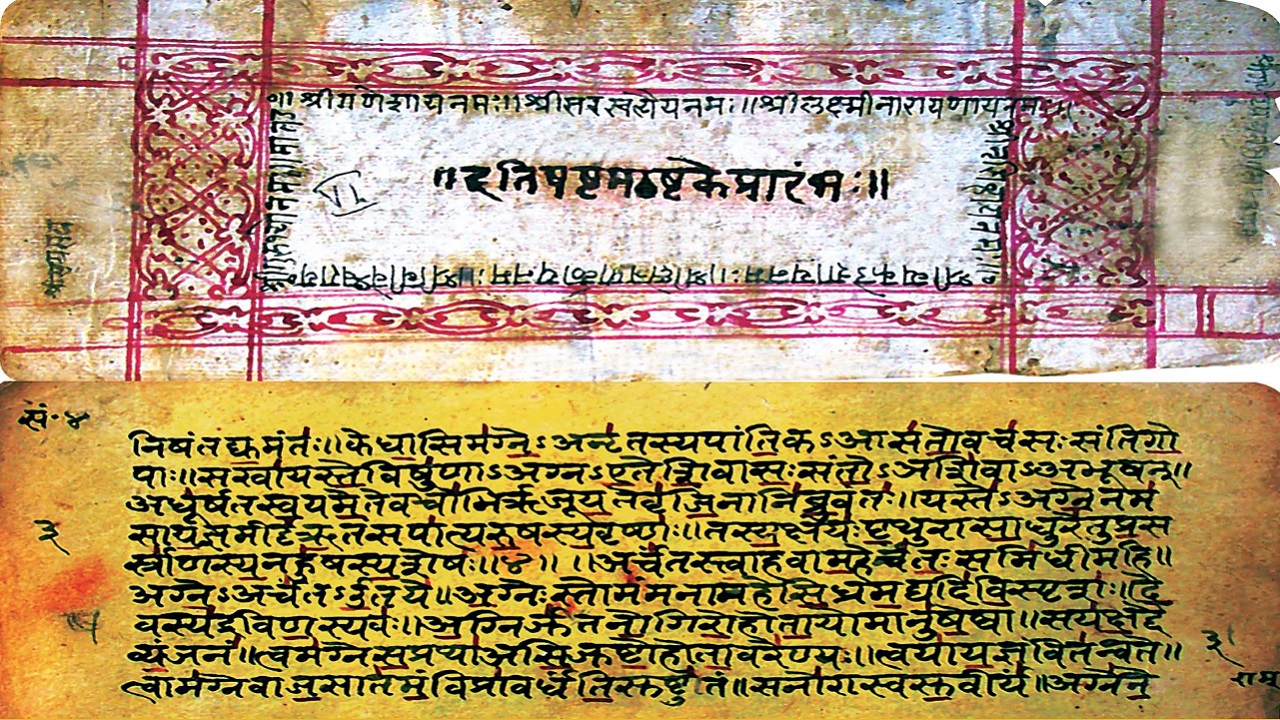 ॥श्रीगणेशायनमः॥श्रीसरस्वत्यैयनमः॥श्रीलक्ष्मीनारायणायनमः
॥इति षष्टमाष्टकेप्रारंभः॥
सं॰४
निषंतद्यमंतः॥केधासिमग्नेऽअनृतस्यपांतिकऽआसतोवचसःसंतिगो
पाः॥सखायस्तेविषुणाऽअग्नऽएतेशिवासःसंतोऽअशिवाऽअभूवन्॥
अधूर्षतस्वयमेतेवचोभिर्ऋजूयतेवृजिनानिब्रुवंतः॥यस्तेऽअग्नेनम
सायज्ञमीट्टेऋतंसपात्यरुषस्यवृष्णः॥तस्यक्षयःपृथुरासाधुरेतुप्रस
र्स्राणस्यनहुषस्यशेषः॥४॥॥अर्चंतस्त्वाहवामहेर्चंतःसमिधीमहि॥
अग्नेऽअर्चंतऽऊतये॥अग्नेःस्तोमंमनामहेसिध्रमद्यदिविस्पृशः॥दे
वस्यद्रविणस्यवः॥अग्निर्जुषतनोगिरोहोतायोमानुषेष्वा॥सयक्षद्दै
व्यंजनं॥त्वमग्नेसप्रथाअसिजुष्टोहोतावरेण्यः॥त्वयायज्ञंवितन्वते॥
त्वामग्नेवाजसातमंविप्रावर्धंतिसुष्टुतं॥सनोरास्वसुवीर्यं॥अग्नेने
३
३
राम